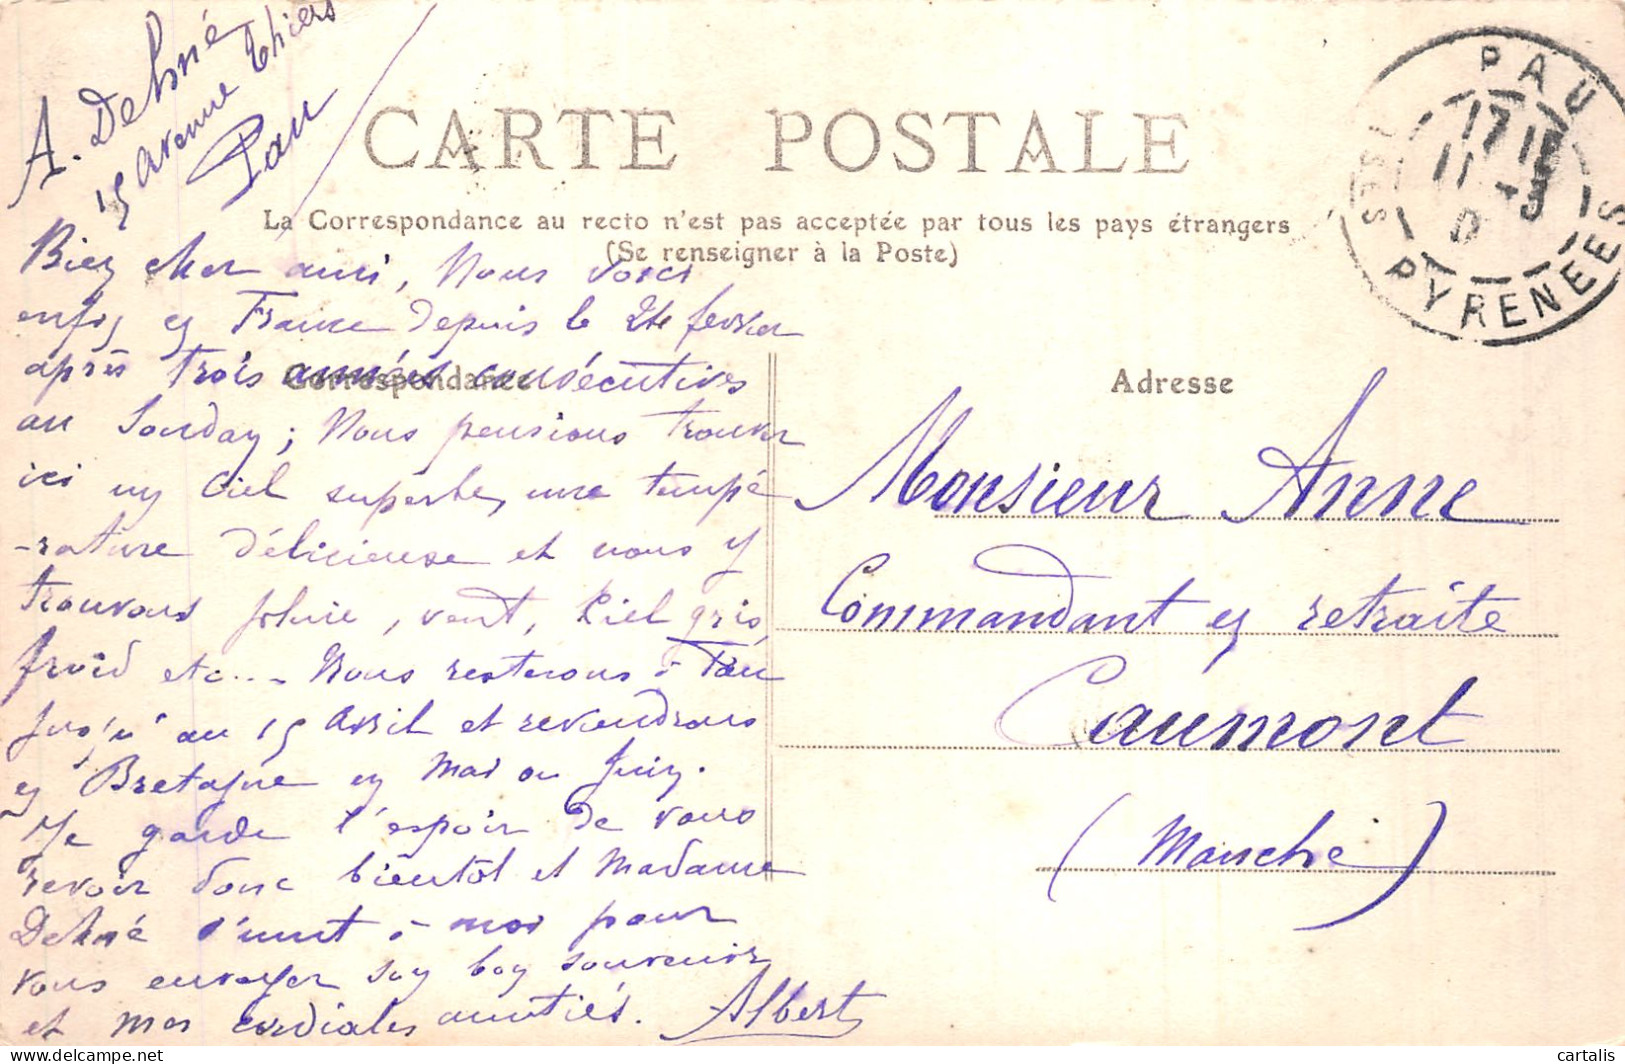 A. Dehné
15 avenue Thiers
Pau
CARTE POSTALE
La Correspondance au recto n'est pas acceptée par tous les pays étrangers
(Se renseigner à la Poste)
PAU
17 15
11 -3
BSES PYRENEES
Correspondance
Bien cher ami, Nous voici
enfin en France depuis le 24 février
après trois années consécutives
au Souday; Nous pensions trouver
ici un Ciel superbe, une tempé
-rature délicieuse et nous y
trouvons pluie, vent, Ciel gris,
froid etc... Nous resterons à Pau
jusqu'au 15 avril et reviendrons
en Bretagne en Mai ou Juin.
Je garde l'espoir de vous
revoir donc bientôt et Madame
Dehné s'unit à moi pour
vous envoyer son bon souvenir
et mes cordiales amitiés. Albert
Adresse
Monsieur Anne
Commandant en retraite
Caumont
(Manche)
delcampe.net
cartalis